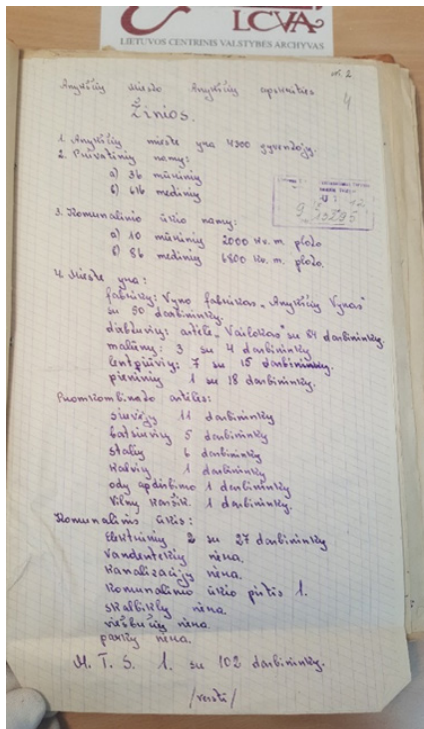 LCVA
LIETUVOS CENTRINIS VALSTYBĖS ARCHYVAS
4
Anykščių miesto Anykščių apskrities
Žinios.
1. Anykščių mieste yra 4300 gyventojų.
2. Privatinių namų:
a) 36 mūrinių
b) 616 medinių
3. Komunalinio ūkio namų:
a) 10 mūrinių 2000 kv. m. ploto
b) 86 medinių 6800 kv. m. ploto.
4. Mieste yra:
fabrikų: Vyno fabrikas „Anykščių Vynas"
su 50 darbininkų.
dirbtuvių: artelė „Vailokas" su 84 darbininkų.
malūnų: 3 su 4 darbininkų
lentpiūvių: 7 su 15 darbininkų.
pieninių 1 su 18 darbininkų.
Promkombinato artelės:
siuvėjų 11 darbininkų
batsiuvių 5 darbininkų
stalių 6 darbininkų
kalvių 1 darbininkų
odų apdirbimo 1 darbininkų
Vilnų karšik. 1 darbininkų.
Komunalinis ūkis:
Elektrinių 2 su 27 darbininkų
vandentekių nėra.
kanalizacijų nėra.
komunalinio ūkio pirtis 1.
skalbyklų nėra.
viešbučių nėra.
parkų nėra.
M. T. S. 1. su 102 darbininkų.
/versti/